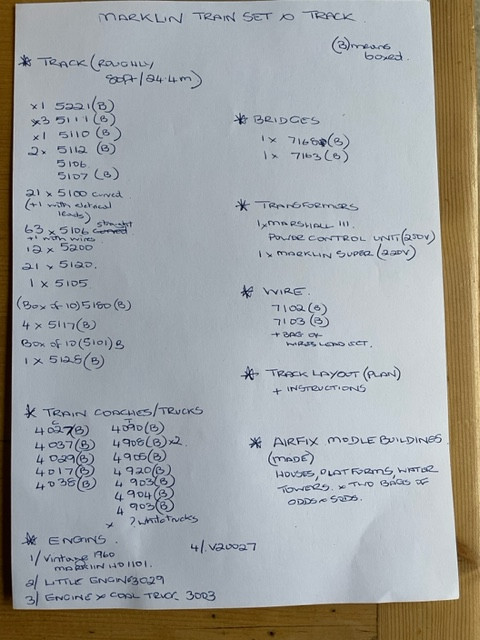 MARKLIN TRAIN SET & TRACK
(B) means boxed.
* TRACK (ROUGHLY
80ft/24.4m)
x1 5221 (B)
x3 5111 (B)
x1 5110 (B)
2x 5112 (B)
5106
5107 (B)
21 x 5100 curved
(+1 with electrical
leads)
63 x 5106 straight
+1 with wires
12 x 5200
21 x 5120.
1 x 5105
(Box of 10) 5180 (B)
4 x 5117 (B)
Box of 10 (5101) B
1 x 5125 (B)
* TRAIN COACHES/TRUCKS
4027 (B)
4037 (B)
4029 (B)
4017 (B)
4035 (B)
4090 (B)
4908 (B) x2
4905 (B)
4920 (B)
4903 (B)
4904 (B)
4903 (B)
x 2 White Trucks
* ENGINS.
1/ Vintage 1960
MARKLIN HO 1101.
2/ LITTLE ENGINE 3029
3/ ENGINE & COAL TRUCK 3003
4/. V20027
* BRIDGES
1 x 7168 (B)
1 x 7163 (B)
* TRANSFORMERS
1 x MARSHALL III.
POWER CONTROL UNIT (250V)
1 x MARKLIN SUPER (220V)
* WIRE.
7102 (B)
7103 (B)
+ BAG OF
WIRES LEAD ECT.
* TRACK LAYOUT (PLAN)
+ INSTRUCTIONS
* AIRFIX MODLE BUILDINGS.
(MADE)
HOUSES, PLATFORMS, WATER
TOWERS. x TWO BAGS OF
ODDS & SODS.